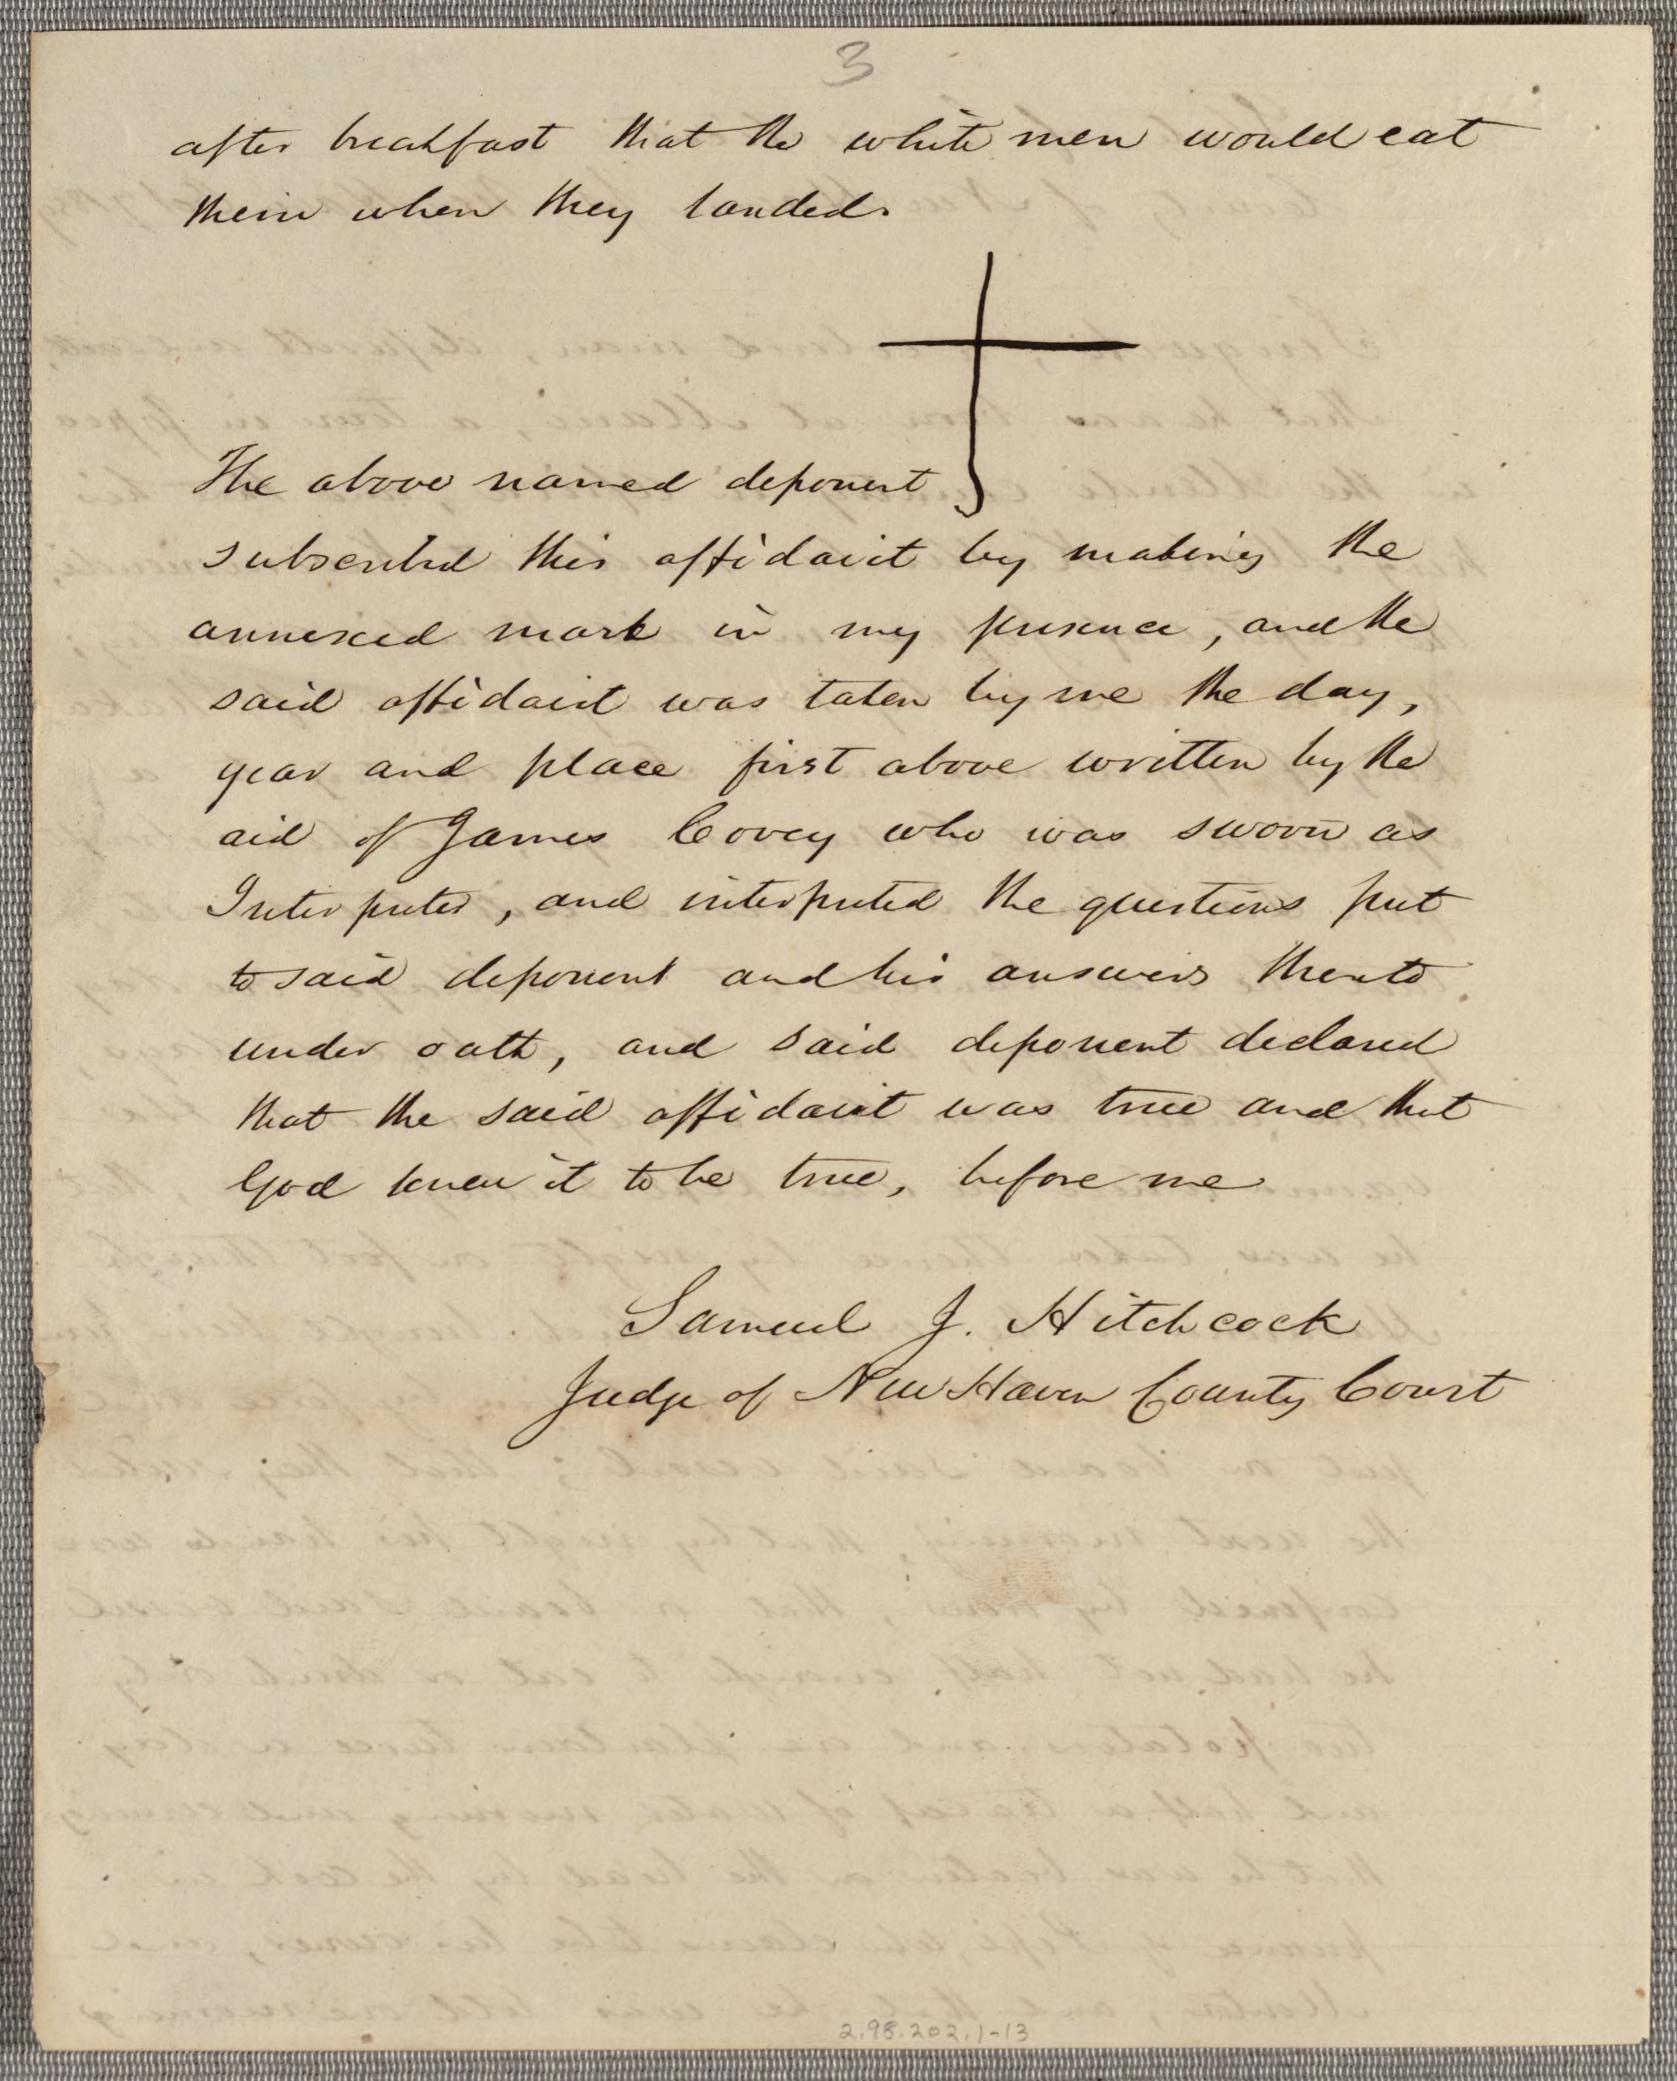 3
after breakfast that the white men would eat
them when they landed.
The above named deponent
subscribed this affidavit by making the
annexed mark in my presence, and the
said affidavit was taken by me the day,
year and place first above written by the
aid of James Covey who was sworn as
Interpreter, and interpreted the questions put
to said deponent and his answers thereto
under oath, and said deponent declared
that the said affidavit was true and that
God knew it to be true, before me
Samuel J. Hitchcock
Judge of New Haven County Court
2.98.202.1-13